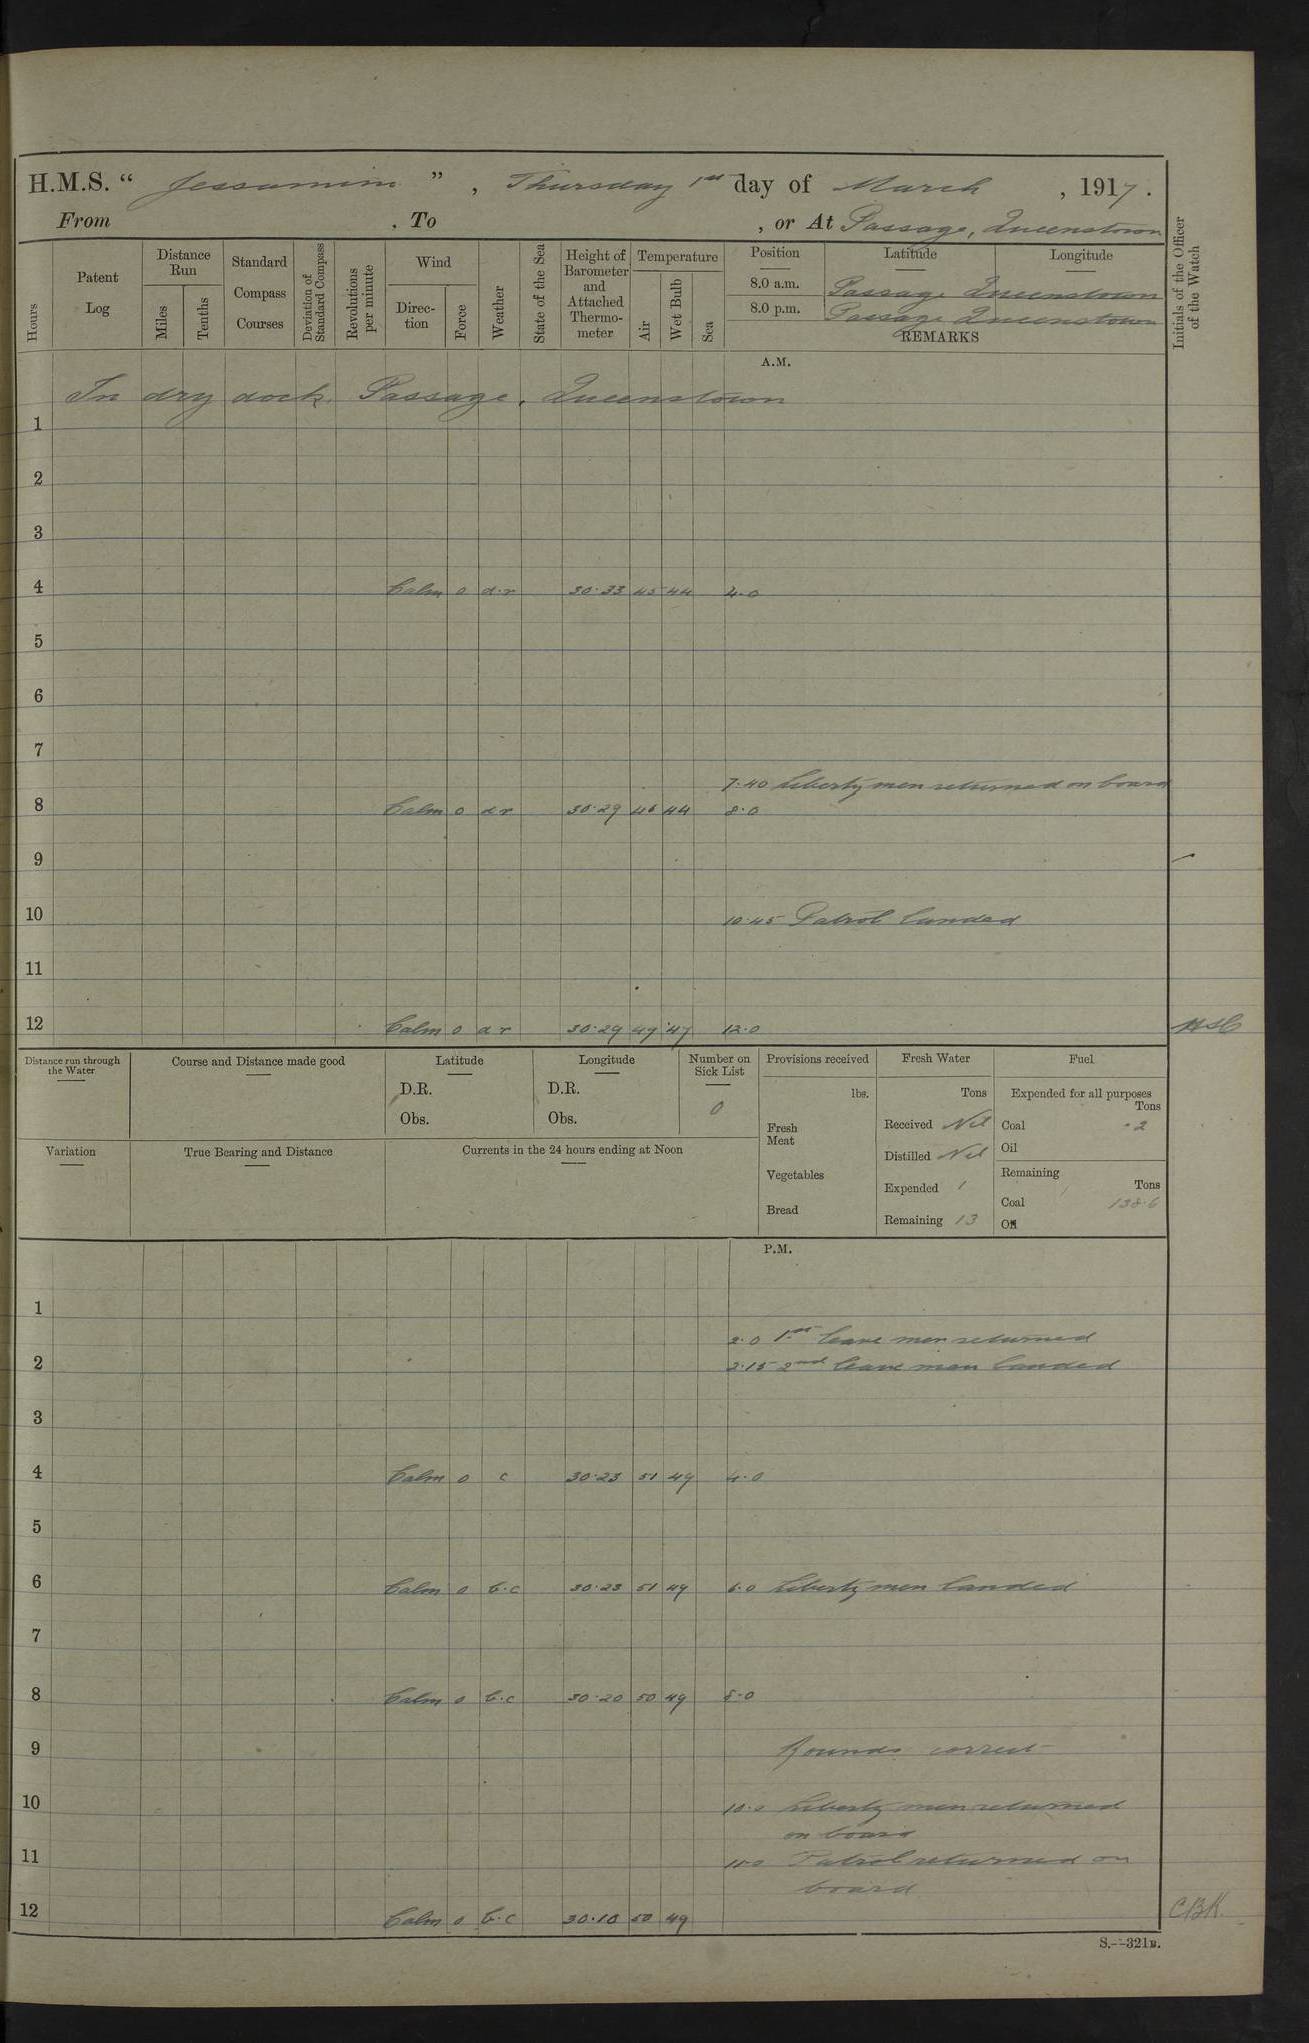 H.M.S. “ Jessamine ” , Thursday 1st day of March , 1917.
From , To , or At Passage, Queenstown
Hours
Patent Log
Distance Run
Miles
Tenths
Standard Compass Courses
Deviation of Standard Compass
Revolutions per minute
Wind
Direc-tion
Force
Weather
State of the Sea
Height of Barometer and Attached Thermo-meter
Temperature
Air
Wet Bulb
Sea
Position Latitude Longitude
8.0 a.m. Passage Queenstown
8.0 p.m. Passage Queenstown
REMARKS
Initials of the Officer of the Watch
A.M.
In dry dock. Passage. Queenstown
1
2
3
4 Calm 0 d.r 30.33 45 44 4.0
5
6
7
7.40 Liberty men returned on board
8 Calm 0 d r 30.29 46 44 8.0
9
10 10.45 Patrol landed
11
12 Calm 0 d r 30.29 49 47 12.0
Distance run through the Water
Course and Distance made good
Latitude
D.R.
Obs.
Longitude
D.R.
Obs.
Number on Sick List
0
Provisions received
lbs.
Fresh Meat
Vegetables
Bread
Fresh Water
Tons
Received Nil
Distilled Nil
Expended 1
Remaining 13
Fuel
Expended for all purposes
Tons
Coal .2
Oil
Remaining
Tons
Coal 138.6
Oil
Variation
True Bearing and Distance
Currents in the 24 hours ending at Noon
P.M.
1
2.0 1st leave men returned
2 2.15 2nd leave men landed
3
4 Calm 0 c 30.23 51 49 4.0
5
6 Calm 0 b.c 30.23 51 49 6.0 Liberty men landed
7
8 Calm 0 b.c 30.20 50 49 8.0
9 Rounds correct
10 10.0 Liberty men returned
on board
11 11.0 Patrol returned on
board
12 Calm 0 b.c 30.10 50 49 CBK.
S.—321B.